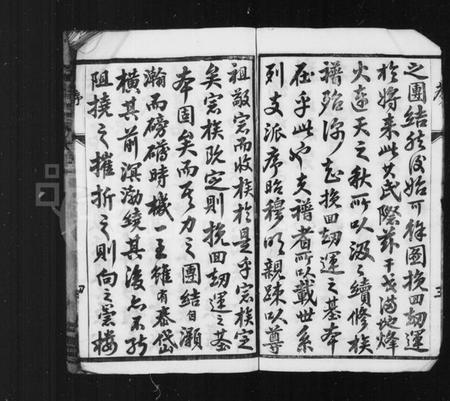 之團結於後始可移圖挽回劫運
於將來此文民際茲干戈滿地烽
火連天之秋所以汲汲續修族
譜殆深知挽回劫運之基本
在乎此也支譜者所以載世系
列支派序昭穆明親疎以尊
祖敬宗而收族於是乎宗族定
矣宗族既定則挽回劫運之基
本固矣而其力之團結自灝
瀚而磅礴時機一至雖有泰岱
橫其前溟渤繞其後亦不能
阻撓之摧折之則向之宗樓
序
三
序
四